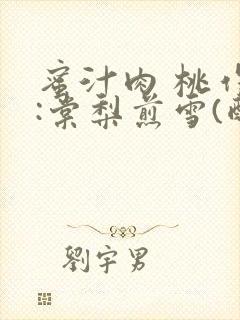 蜜汁肉桃作
:棠梨煎雪(酥
劉宇男